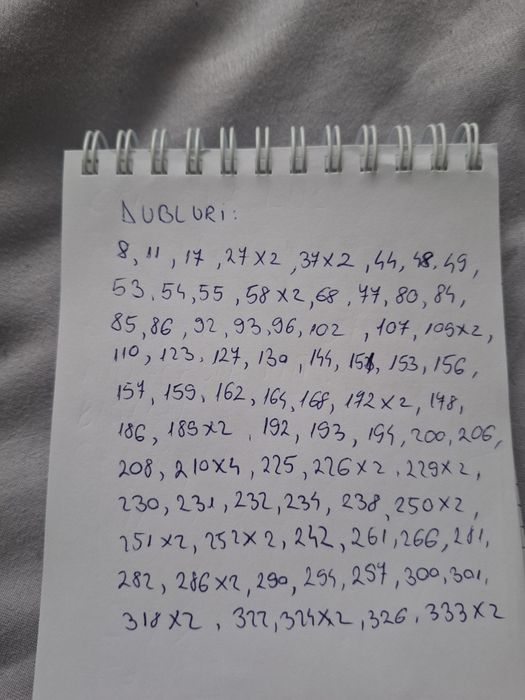 DUBLURI:
8, 11, 17, 27x2, 37x2, 44, 48, 49,
53, 54, 55, 58x2, 68, 77, 80, 84,
85, 86, 92, 93, 96, 102, 107, 109x2,
110, 123, 127, 130, 144, 151, 153, 156,
157, 159, 162, 164, 168, 172x2, 178,
186, 189x2, 192, 193, 194, 200, 206,
208, 210x4, 225, 226x2, 229x2,
230, 231, 232, 234, 238, 250x2,
251x2, 252x2, 242, 261, 266, 281,
282, 286x2, 290, 294, 297, 300, 301,
318x2, 322, 324x2, 326, 333x2